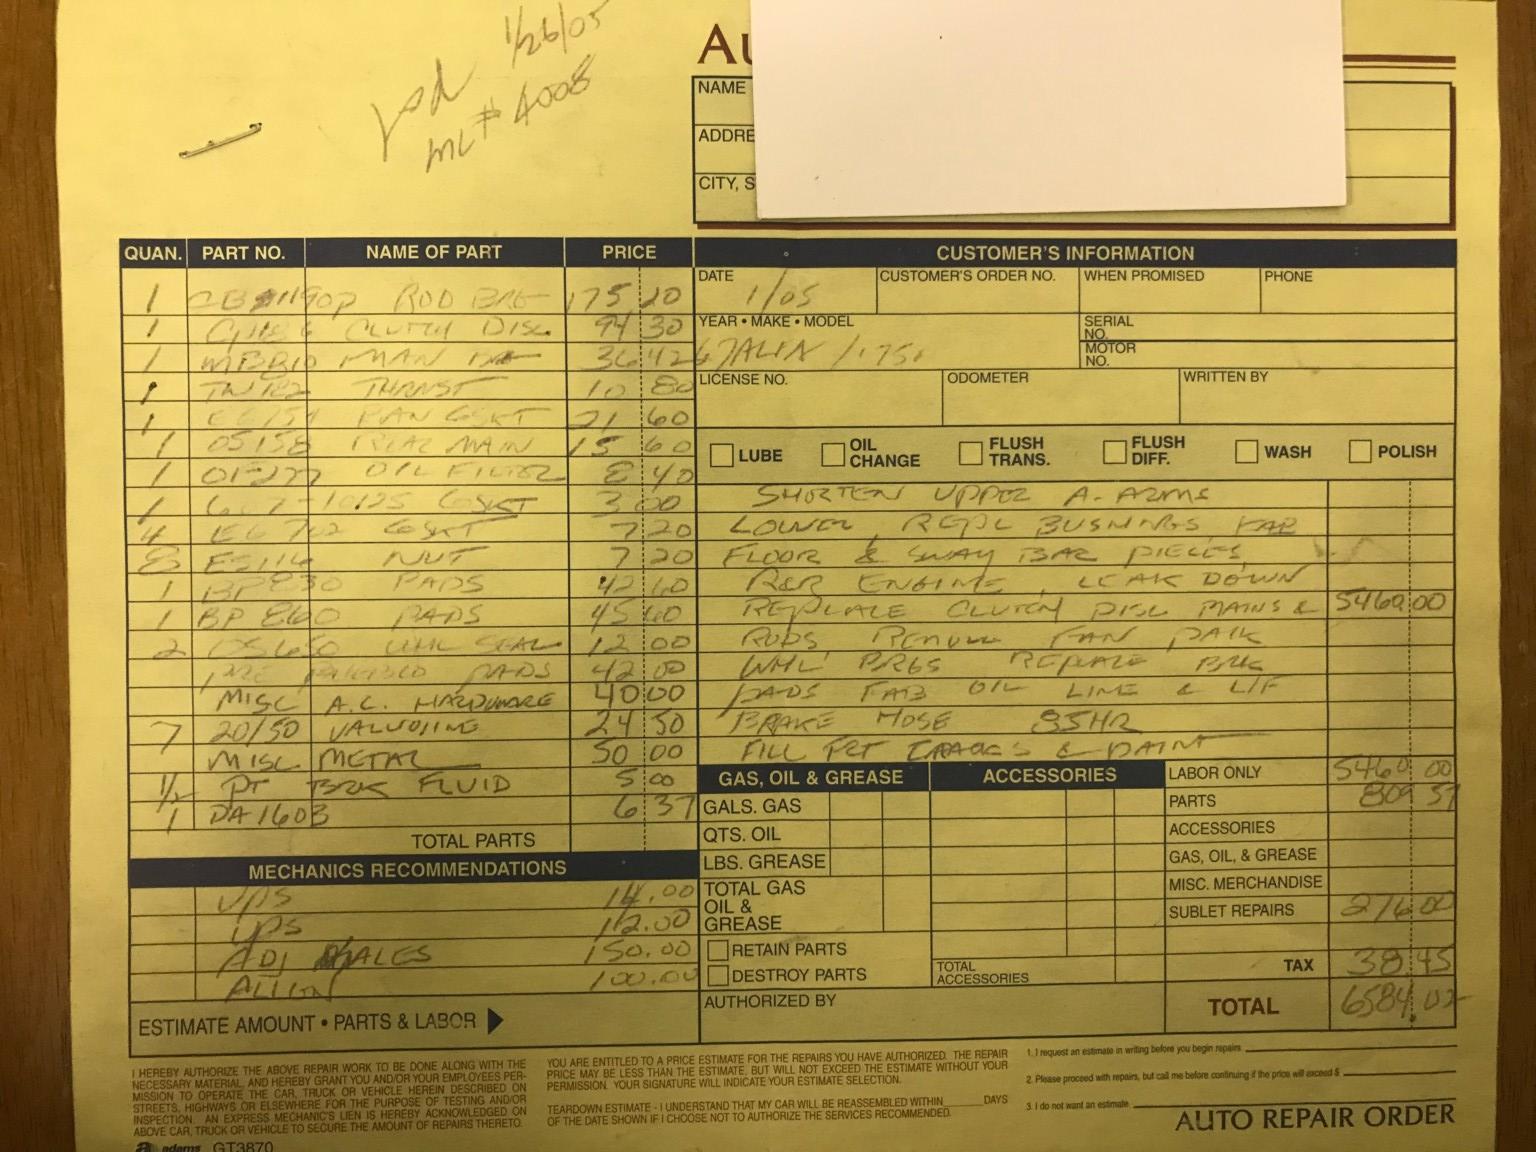 1/26/05
pd
ML # 4008
AU
NAME
ADDRE
CITY, S
QUAN. PART NO. NAME OF PART PRICE
1 ROD BRG 175 20
1 CLUTCH DISC 94 30
1 MAN 36 42
1 TW182 THRUST 10 80
1 PAN GSKT 21 60
1 05158 REAR MAIN 15 60
1 OF277 OIL FILTER 8 40
1 GSKT 3 00
4 EG 702 GSKT 7 20
8 ES114 NUT 7 20
1 BP830 PADS 42 60
1 BP 860 PADS 45 60
2 WHL SEAL 12 00
PADS 42 00
MISC A.C. HARDWARE 40 00
7 20/50 VALVOLINE 24 50
MISC METAL 50 00
1/2 PT BRK FLUID 5 00
1 DA1603 6 37
TOTAL PARTS
MECHANICS RECOMMENDATIONS
UPS 14.00
UPS 12.00
ADJ SCALES 150.00
ALIGN 100.00
ESTIMATE AMOUNT • PARTS & LABOR
CUSTOMER'S INFORMATION
DATE 1/05 CUSTOMER'S ORDER NO. WHEN PROMISED PHONE
YEAR • MAKE • MODEL SERIAL NO.
MOTOR NO.
LICENSE NO. ODOMETER WRITTEN BY
LUBE OIL CHANGE FLUSH TRANS. FLUSH DIFF. WASH POLISH
SHORTEN UPPER A-ARMS
LOWER, REPL BUSHINGS, FAB
FLOOR & SWAY BAR PIECES,
R&R ENGINE, LEAK DOWN
REPLACE CLUTCH DISC MAINS & 5460 00
RODS REMOVE FAN PACK
WHL BRGS REPLACE BRK
PADS FAB OIL LINE & L/F
BRAKE HOSE 85HR
FILL FRT CRACKS & PAINT
GAS, OIL & GREASE ACCESSORIES LABOR ONLY 5460 00
GALS. GAS PARTS 809 57
QTS. OIL ACCESSORIES
LBS. GREASE GAS, OIL, & GREASE
TOTAL GAS OIL & GREASE MISC. MERCHANDISE
SUBLET REPAIRS 276 00
RETAIN PARTS
DESTROY PARTS TOTAL ACCESSORIES TAX 38.45
AUTHORIZED BY TOTAL 6584.02
I HEREBY AUTHORIZE THE ABOVE REPAIR WORK TO BE DONE ALONG WITH THE
NECESSARY MATERIAL, AND HEREBY GRANT YOU AND/OR YOUR EMPLOYEES PER-
MISSION TO OPERATE THE CAR, TRUCK OR VEHICLE HEREIN DESCRIBED ON
STREETS, HIGHWAYS OR ELSEWHERE FOR THE PURPOSE OF TESTING AND/OR
INSPECTION. AN EXPRESS MECHANIC'S LIEN IS HEREBY ACKNOWLEDGED ON
ABOVE CAR, TRUCK OR VEHICLE TO SECURE THE AMOUNT OF REPAIRS THERETO.
adams GT3870
YOU ARE ENTITLED TO A PRICE ESTIMATE FOR THE REPAIRS YOU HAVE AUTHORIZED. THE REPAIR
PRICE MAY BE LESS THAN THE ESTIMATE, BUT WILL NOT EXCEED THE ESTIMATE WITHOUT YOUR
PERMISSION. YOUR SIGNATURE WILL INDICATE YOUR ESTIMATE SELECTION.
TEARDOWN ESTIMATE - I UNDERSTAND THAT MY CAR WILL BE REASSEMBLED WITHIN DAYS
OF THE DATE SHOWN IF I CHOOSE NOT TO AUTHORIZE THE SERVICES RECOMMENDED.
1. I request an estimate in writing before you begin repairs.
2. Please proceed with repairs, but call me before continuing if the price will exceed $
3. I do not want an estimate.
AUTO REPAIR ORDER